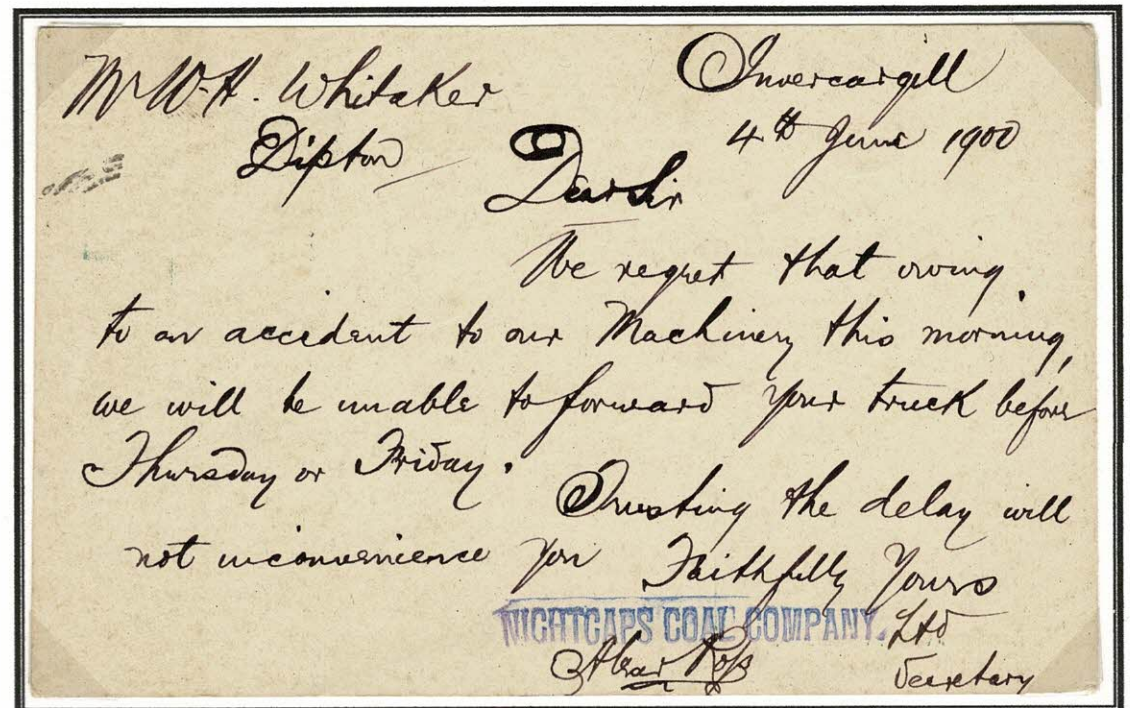 Mr W. H. Whitaker
Dipton
Invercargill
4th June 1900
9
Dear Sir
We regret that owing
to an accident to our Machinery this morning,
we will be unable to forward your truck before
Thursday or Friday.
Trusting the delay will
not inconvenience you Faithfully Yours
NIGHTCAPS COAL COMPANY. Ltd
Alexr Ross
Secretary